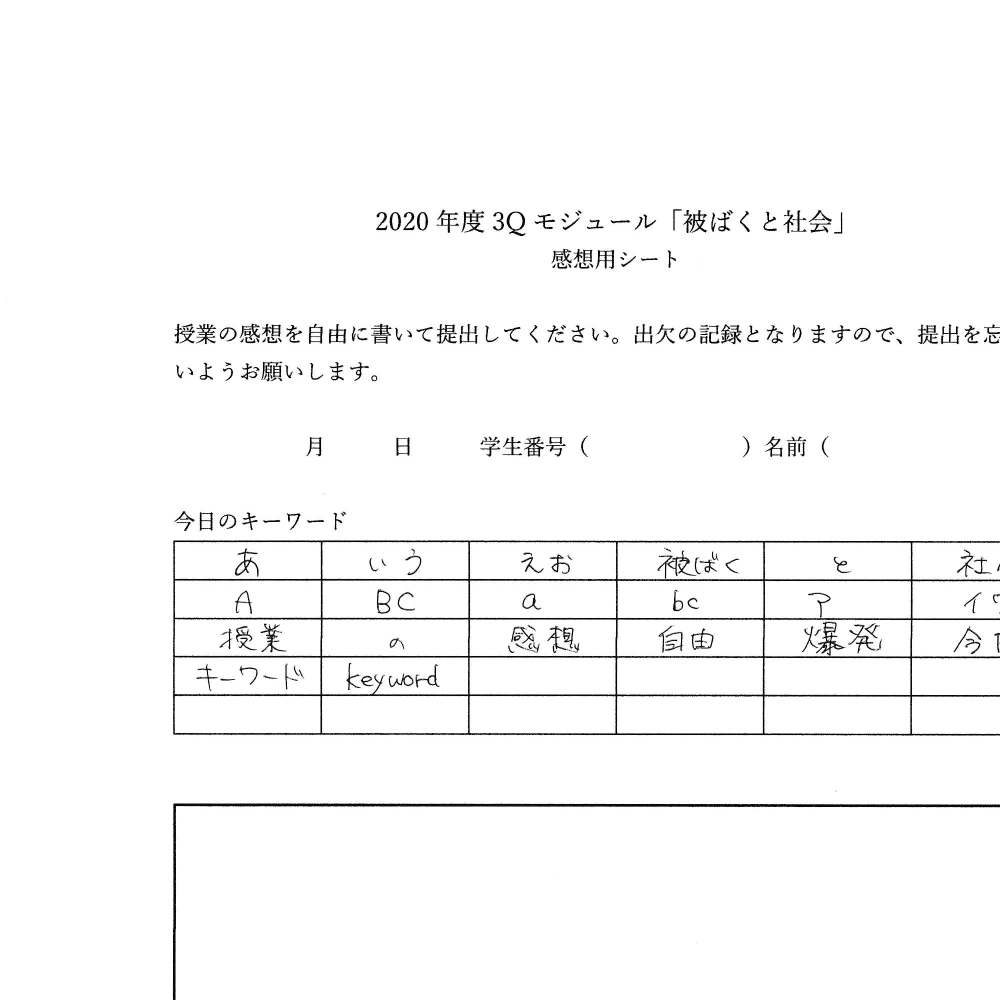 2020 年度 3Q モジュール「被ばくと社会」
感想用シート
授業の感想を自由に書いて提出してください。出欠の記録となりますので、提出を忘
いようお願いします。
月 日 学生番号（ ）名前（
今日のキーワード
あ いう えお 被ばく と 社
A BC a bc ア イ
授業 の 感想 自由 爆発 今
キーワード keyword